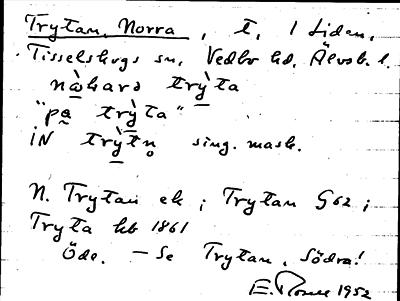 Trytan, Norra, t, i Liden,
Tisselskogs sn, Vedbo hd, Älvsb. l.
trỳta
"på trỳta"
IN trỳtn̥ sing. mask.
N. Trytan ek ; Trytan G62 ;
Tryta hb 1861
Öde. – Se Trytan, Södra!
E. 1952